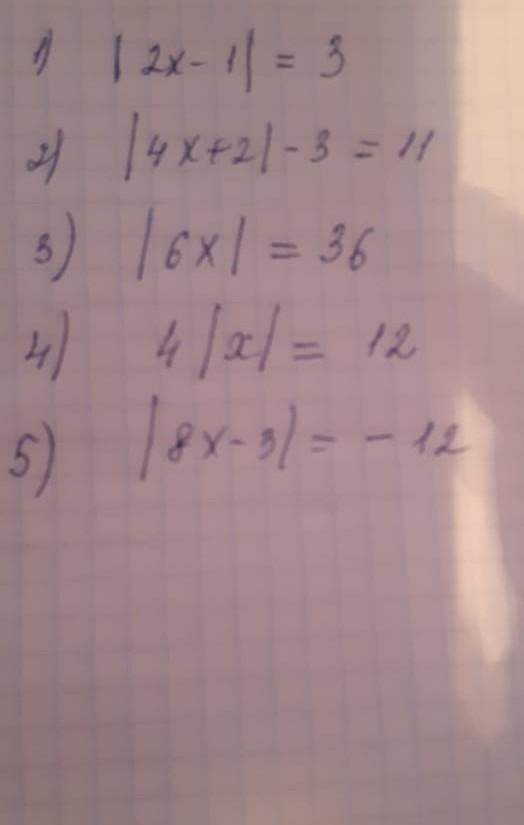 1) |2x-1| = 3
2) |4x+2| - 3 = 11
3) |6x| = 36
4) 4|x| = 12
5) |8x-3| = -12